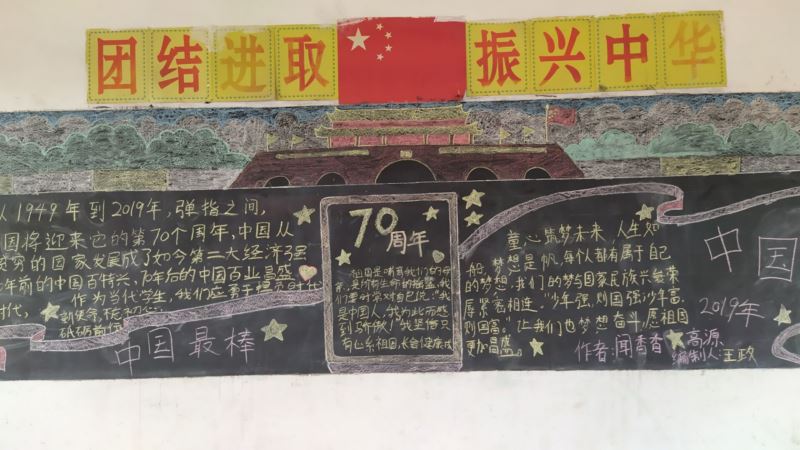 团结进取 振兴中华
从1949年到2019年，弹指之间，
国将迎来它的第70个周年，中国从
贫穷的国家发展成了如今第二大经济强
年前的中国百特兴，70年后的中国百业昌盛
作为当代学生，我们应勇于担负时代
新使命，
砥砺前行
中国最棒
70
周年
祖国是哺育我们的母
亲，是所有生命的摇篮，我
们要时常对自己说：“我
是中国人，我为此而感
到骄傲！”我坚信只
有心系祖国，
童心筑梦未来，人生如
船，梦想是帆，每个人都有属于自己
的梦想，我们的梦与国家民族
紧紧相连。“少年强，则国强，少年富，
则国富。”让我们也梦想奋斗，愿祖国
更加昌盛。
作者：闻香香 高源
编制人：王政
中国
2019年